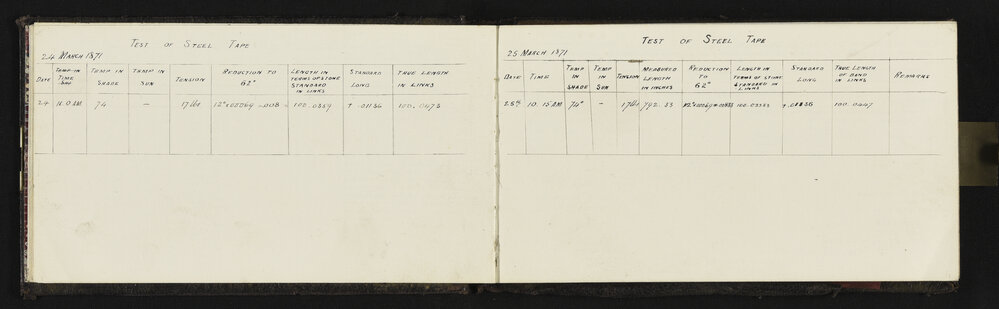 TEST OF STEEL TAPE
24 MARCH 1871
DATE
TIME
TEMP IN SHADE
TEMP IN SUN
TENSION
REDUCTION TO 62°
LENGTH IN TERMS OF STONE STANDARD IN LINKS
STANDARD LONG
TRUE LENGTH IN LINKS
24 11.0 AM 74 — 17 lbs 100.0359 + .01136 100.0473
TEST OF STEEL TAPE
25 MARCH 1871
DATE
TIME
TEMP IN SHADE
TEMP IN SUN
TENSION
MEASURED LENGTH IN INCHES
REDUCTION TO 62°
LENGTH IN TERMS OF STONE STANDARD IN LINKS
STANDARD LONG
TRUE LENGTH OF BAND IN LINKS
REMARKS
25th 10.15 AM 74° — 17 lbs 792.35 100.0333 +.01136 100.0447